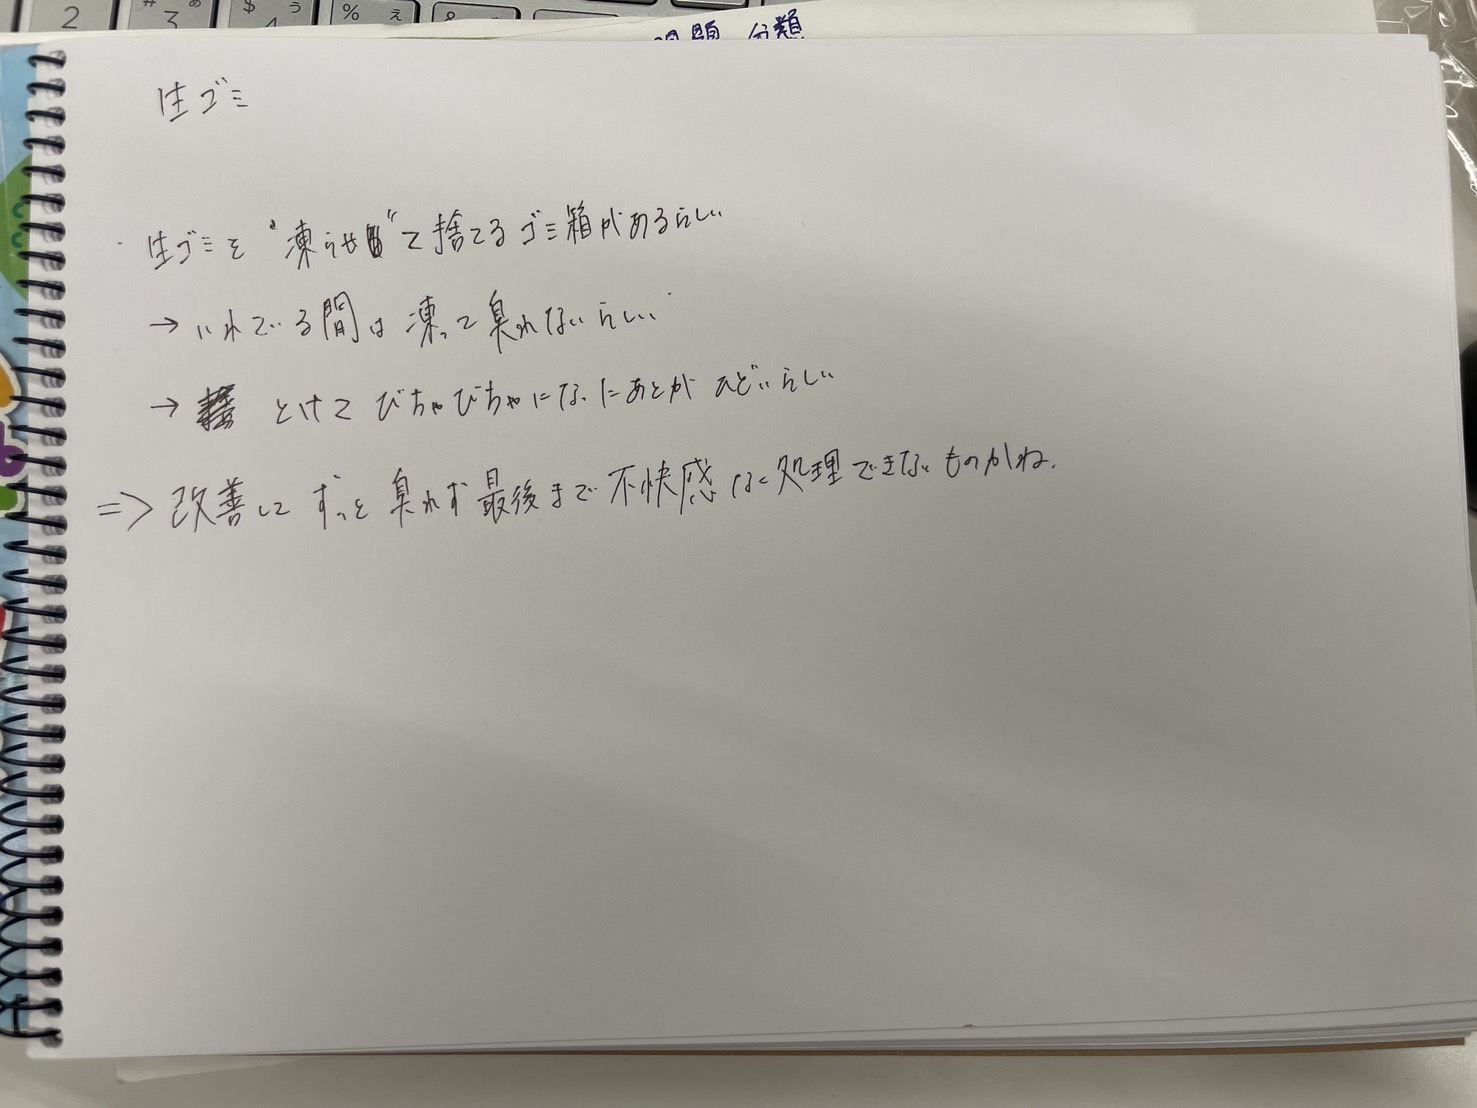 問題 分類
生ゴミ
・生ゴミを "凍らせ" て捨てるゴミ箱があるらしい
→ いれている間は凍って臭わないらしい
→ とけてびちゃびちゃになったあとがひどいらしい
⇒ 改善して ずっと 臭わず 最後まで 不快感なく処理できないものかね.
2
# あ
3
$ う
4
% え
&